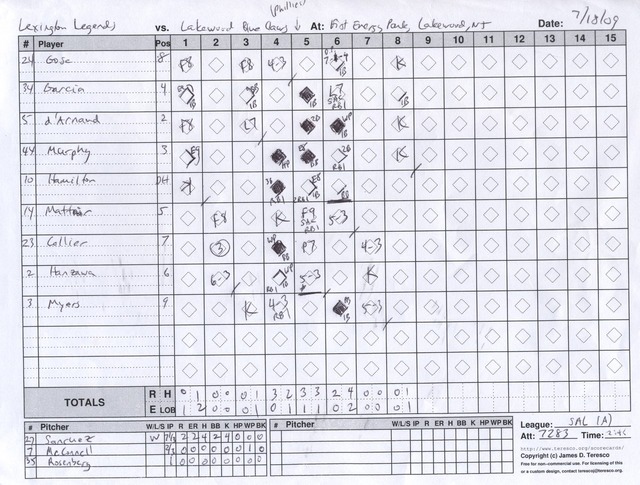 (Phillies)
Lexington Legends vs. Lakewood Blue Claws At: First Energy Park, Lakewood, NJ Date: 7/18/09
# Player Pos 1 2 3 4 5 6 7 8 9 10 11 12 13 14 15
24 Gose 8 F8 F8 4-3 K
34 Garcia 4 1B L7 SAC RBI 1B
5 d'Arnaud 2 F8 L7 2B 1B WP K
44 Murphy 3 HP 2B K
10 Hamilton DH RBI RBI
14 5 F8 K F9 SAC RBI 5-3
23 Collier 7 3 WP BB F7 4-3
2 Hanzawa 6 6-3 RBI 1B 5-3 K
3 Myers 9 K 4-3 RBI 1B 5-3
TOTALS R H 0 1 0 0 0 1 3 2 3 3 2 4 0 0 0 1
E LOB 1 2 0 0 0 1 0 1 1 1 0 2 0 0 0 1
# Pitcher W/L/S IP R ER H BB K HP WP BK # Pitcher W/L/S IP R ER H BB K HP WP BK
27 Sanchez W 7⅓ 2 2 4 2 4 0 0 0
7 McConnell ⅔ 0 0 0 0 0 0 1 0
35 Rosenberg 1 0 0 0 0 0 0 0 0
League: SAL (A)
Att: 7283 Time: 2:46
http://www.teresco.org/scorecards/
Copyright (c) James D. Teresco
Free for non-commercial use. For licensing of this
or a custom design, contact teresco@teresco.org.